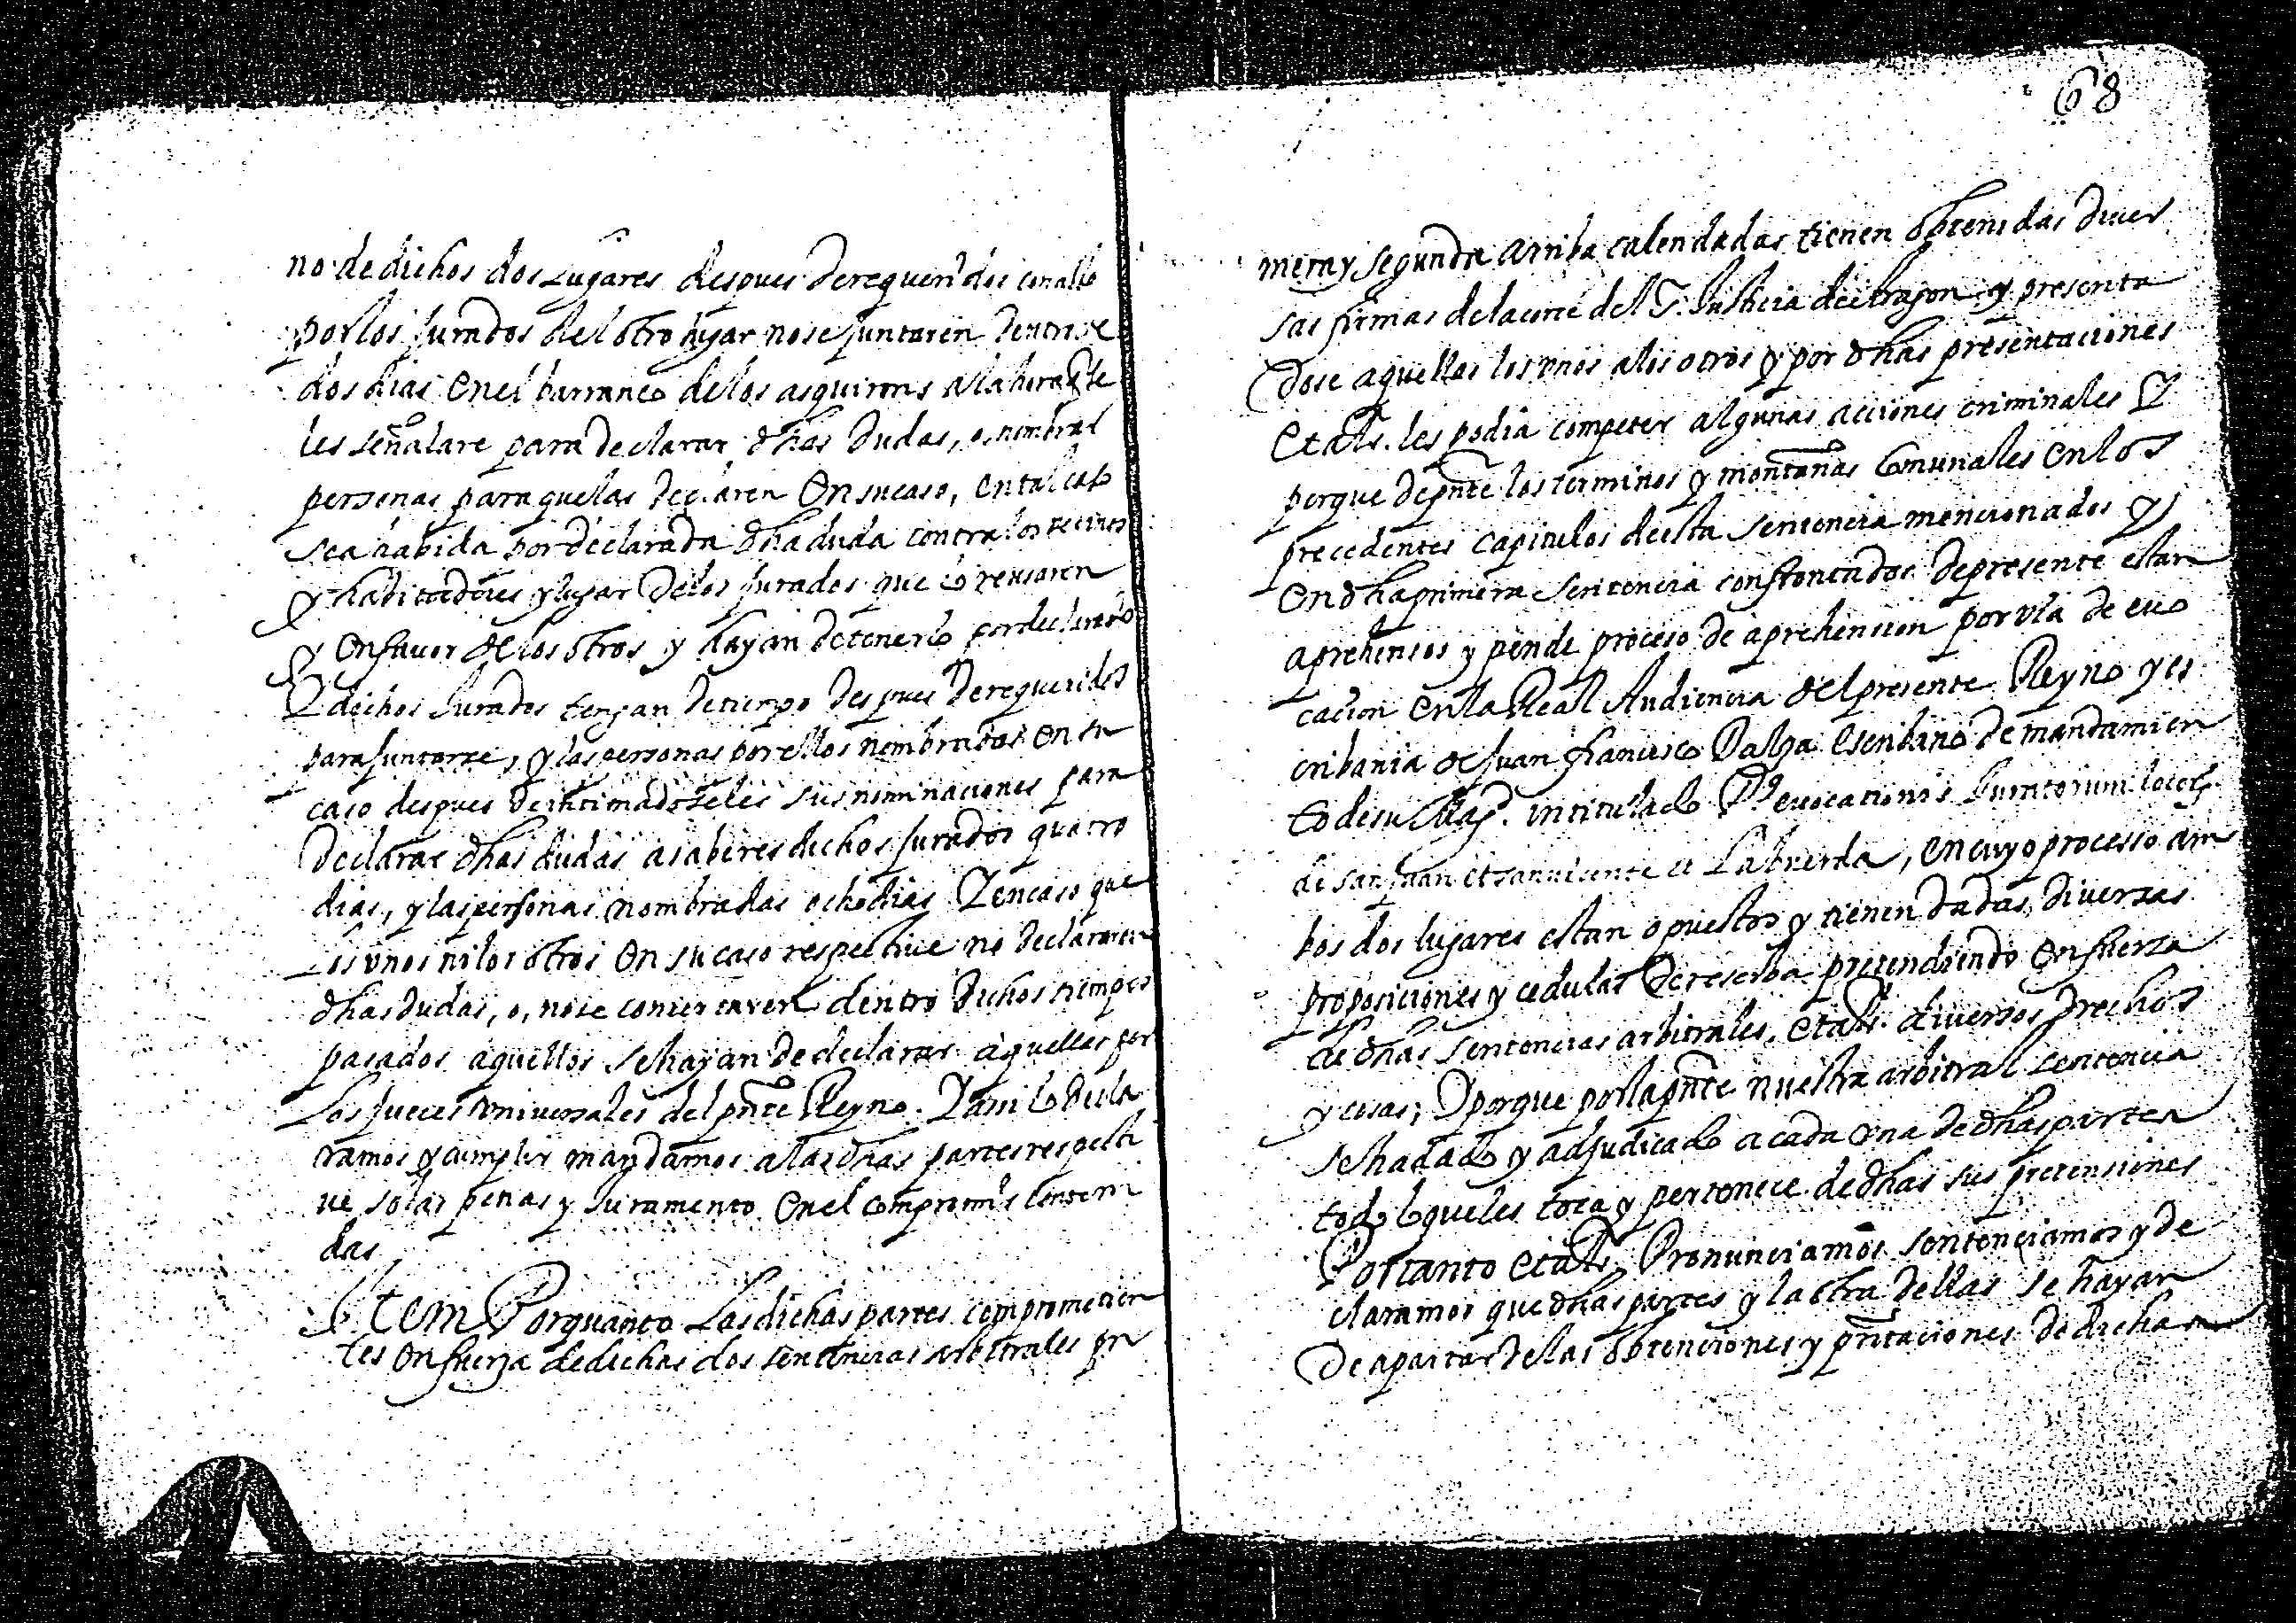 no de dichos dos Lugares despues de requeridos con acto
por los Jurados del otro lugar no se juntaren dentro de
dos dias en el barranco de los asquirons a la hora q̃ se
les señalare para declarar dhas dudas, o, nombrar
personas para que las declaren en su caso, en tal caso
sea habida por declarada dha duda contra los vecinos
y habitadores y lugar de los Jurados que lo reusaren
y en fauor de los otros y hayan de tenerlo por declarado
Y dichos Jurados tengan de tiempo despues de requeridos
para Juntarse, y las personas por ellos nombradas en su
caso despues de intimadoseles sus nominaciones para
declarar dhas dudas a saber es dichos Jurados quatro
dias, y las personas nombradas ocho dias Y en caso que
Los vnos ni los otros en su caso respectiue no declararen
dhas dudas, o, no se concertaren dentro dichos tiempos
pasados aquellos se hayan de declarar aquellas por
Los Jueces vniuersales del pñte Reyno. Y assi lo decla
ramos y cumplir mandamos a las dhas partes respecti
ue so las penas y Juramento en el compromis conteni
das
Item Por quanto Las dichas partes comprometien
tes en fuerza de dichas dos sentencias arbitrales pri
68
mera y segunda arriba calendadas tienen obtenidas diuer
sas firmas de la corte del S.r Justicia de Aragon y presenta
dose aquellas los vnos a los otros y por dhas presentaciones
Et als. les podia competer algunas acciones criminales Y
porque de pñte los terminos y montañas Comunales en los
precedentes capitulos de esta sentencia mencionados y
en dha primera sentencia confrontados de presente estan
aprehensos y pende proceso de aprehension por via de euo
cacion en la Real Audiencia del presente Reyno y es
cribania de Juan francisco Dalga escribano de mandamien
to de su Mag.d intitulado P.s euocationis Juratorum locor̃
de san Juan et san vicente et Labuerda, en cuyo processo am
bos dos lugares estan opuestos y tienen dadas diuersas
proposiciones y cedulas de reserba pretendiendo en fuerza
de dhas sentencias arbitrales, et als. diuersos drechos
y cosas, Y porque por la pñte nuestra arbitral sentencia
se ha dado y adjudicado a cada vna de dhas partes
todo lo que les toca y pertenece de dhas sus pretensiones
Por tanto et als. Pronunciamos sentenciamos y de
claramos que dhas partes y la otra dellas se hayan
de apartar de las obtenciones y pñtaciones de dichas